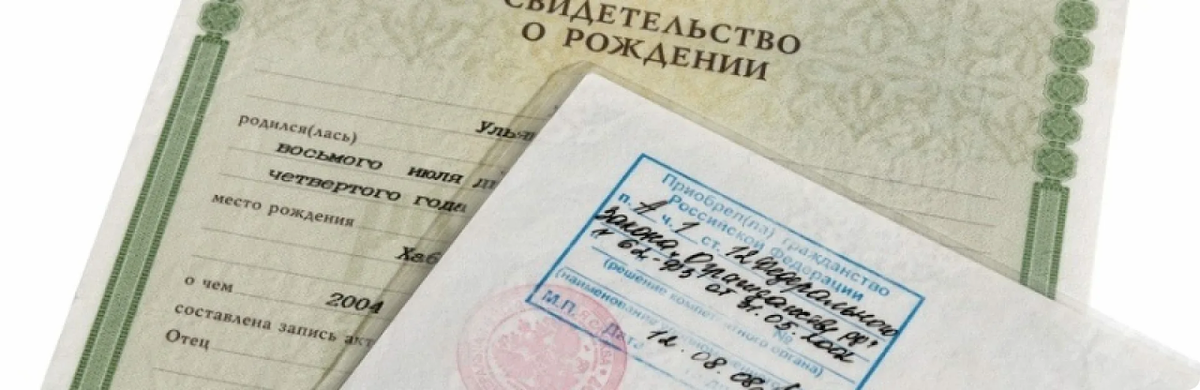 СВИДЕТЕЛЬСТВО
О РОЖДЕНИИ
родился(лась)
восьмого июля
четвертого года
место рождения
о чем 2004
составлена запись
Отец
Приобрел(ла) гражданство
Российской федерации
п. А ч. 1 ст. 12 Федерального
Закона
№ 62-ФЗ от 31.05.2002
(решение компетентного органа)
(наименование
М.П. Дата 12.08.08